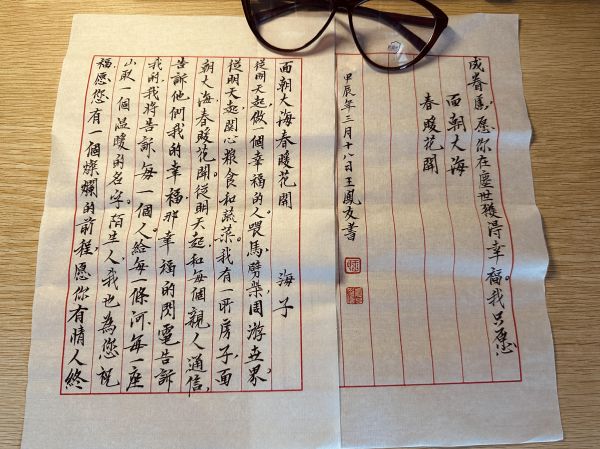 面朝大海春暖花開 海子
從明天起,做一個幸福的人。喂馬劈柴,周游世界。
從明天起,関心粮食和蔬菜。我有一所房子,面
朝大海,春暖花開。從明天起,和每個親人通信,
告訴他們我的幸福,那幸福的閃電告訴
我的,我将告訴每一個人。給每一條河每一座
山取一個温暖的名字。陌生人,我也為您祝
福。愿您有一個燦爛的前程,愿你有情人終
成眷属,愿你在塵世獲得幸福。我只愿
面朝大海
春暖花開
甲辰年三月十八日王鳳友書